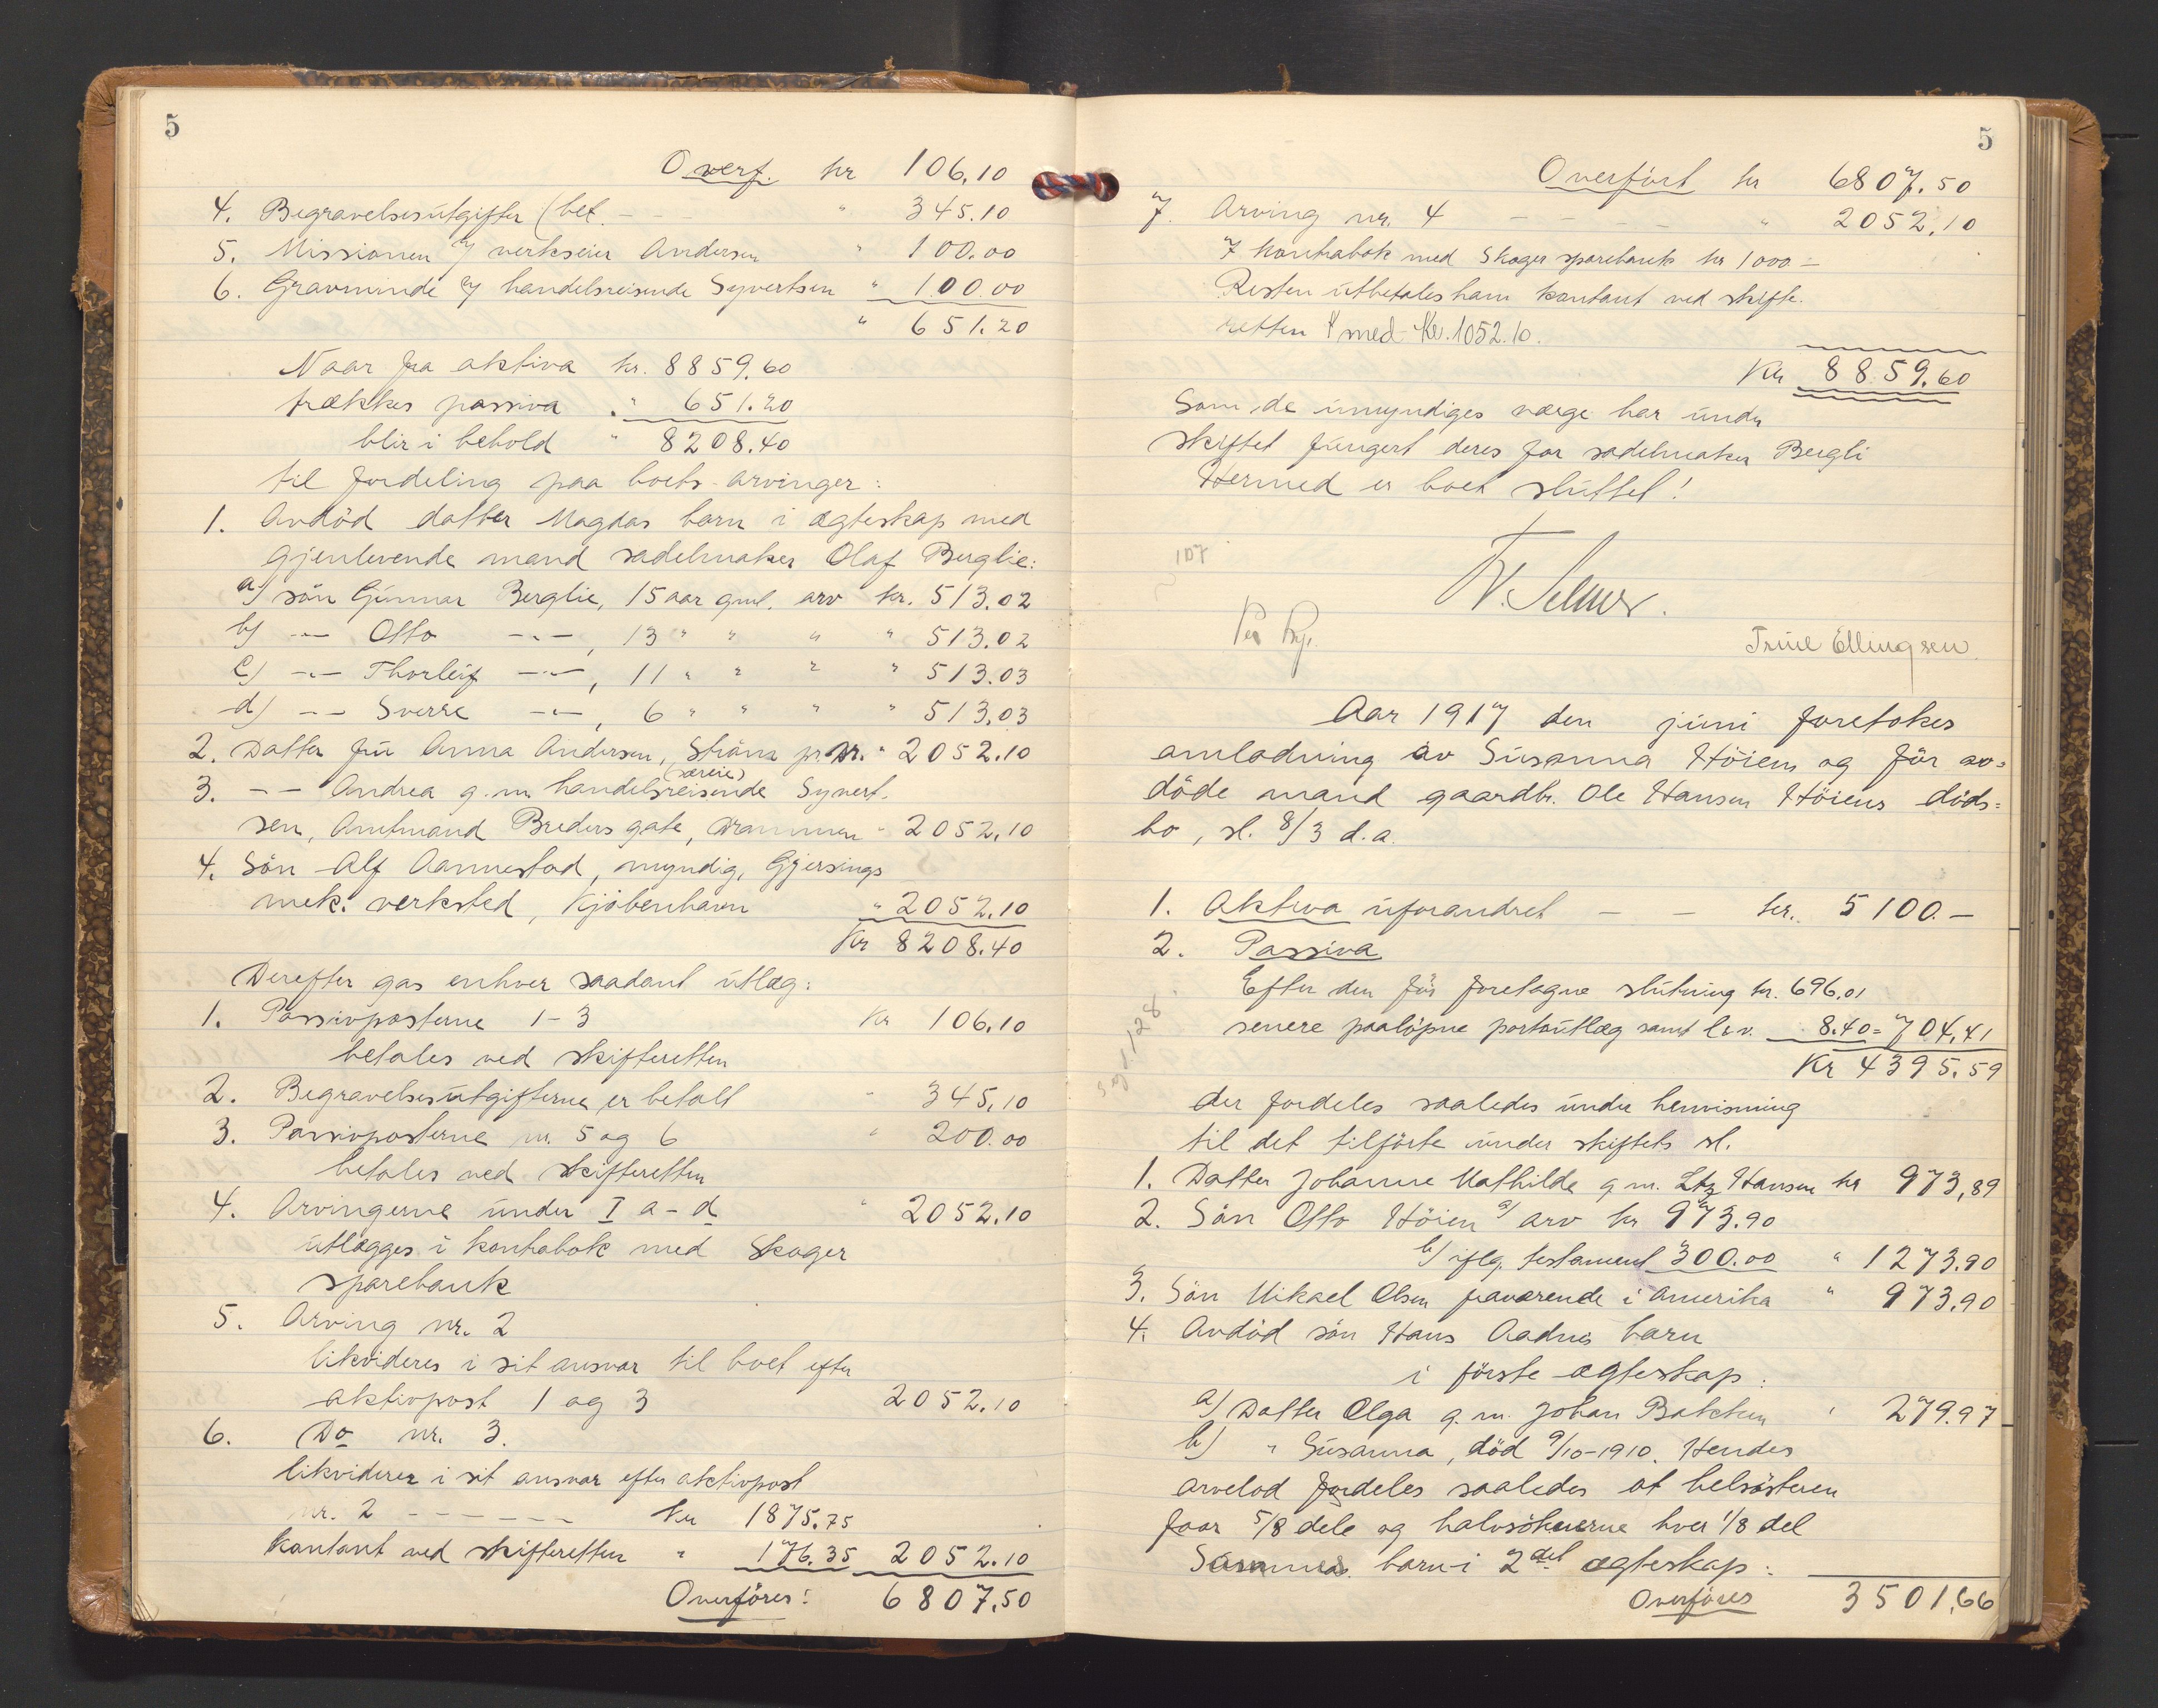 5
Overf. kr 106.10
4. Begravelsesutgifter (bet. - - - " 345.10
5. Missionen v/ verkseier Andersen " 100.00
6. Gravminde v/ handelsreisende Syvertsen " 100.00
" 651.20
Naar fra aktiva kr. 8859.60
trækkes passiva " 651.20
blir i behold " 8208.40
til fordeling paa boets arvinger:
1. Avdöd datter Magdas barn i ægteskap med
gjenlevende mand sadelmaker Olaf Berglie:
a) sön Gunnar Berglie, 15 aar gml. arv kr. 513.02
b) -"- Otto -"-, 13 " " " " 513.02
c) -"- Thorleif -"-, 11 " " " " 513.03
d) -"- Sverre -"-, 6 " " " " 513.03
2. Datter fru Anna Andersen, Ströms pr. Dr. " 2052.10
(særeie)
3. -"- Andrea g.m. handelsreisende Syvert-
sen, Amtmand Breders gate, Drammen " 2052.10
4. Sön Alf Aannestad, myndig, Gjersings
mek. verksted, Kjöbenhavn " 2052.10
Kr 8208.40
Derefter gas enhver saadant utlæg:
1. Passivposterne 1-3 Kr 106.10
betales ved skifteretten
2. Begravelsesutgifterne er betalt " 345.10
3. Passivposterne nr. 5 og 6 " 200.00
betales ved skifteretten
4. Arvingerne under I a-d " 2052.10
utlægges i kontrabok med Skoger
sparebank
5. Arving nr. 2
likvideres i sit ansvar til boet efter
aktivpost 1 og 3 2052.10
6. Do nr. 3.
likviderer i sit ansvar efter aktivpost
nr. 2 - - - - - - Kr 1875.75
Kontant ved skifteretten " 176.35 2052.10
Overföres: 6807.50
5
Overfört kr 6807.50
7. Arving nr. 4 - - - - " 2052.10
I kontrabok med Skoger sparebank kr 1000 -
Resten utbetales ham kontant ved skifte-
retten med Kr. 1052.10.
Kr 8859.60
Som de umyndiges værge har under
skiftet fungert deres far sadelmaker Bergli
Hermed er boet sluttet!
107
Selmer.
Ellingsen
Aar 1917 den juni foretokes
omlodning av Susanna Höiens og för av=
döde mand gaardbr. Ole Hansen Höiens döds=
bo, sl. 8/3 d.a.
1. Aktiva uforandret - - kr. 5100.-
2. Passiva
Efter den för foretagne slutning kr. 696.01
senere paalöpne portoutlæg samt 8.40 = 704.41
Kr 4395.59
128
der fordeles saaledes under henvisning
til det tilförte under skiftets sl.
1. Datter Johanne Mathilde g.m. Hansen kr 973,89
2. Sön Otto Höien a) arv kr 973.90
b) iflg. testament 300.00 " 1273.90
3. Sön Mikael Olsen fraværende i Amerika " 973.90
4. Avdöd sön Hans Aadnes barn
i förste ægteskap:
a) Datter Olga g.m. Johan Bakken " 279.97
b) " Susanna, död 9/10-1910. Hendes
arvelod fordeles saaledes at helsösteren
faar 5/8 dele og halvsöknerne hver 1/8 del
Sammes barn i 2det ægteskap:
Overföres 3501,66